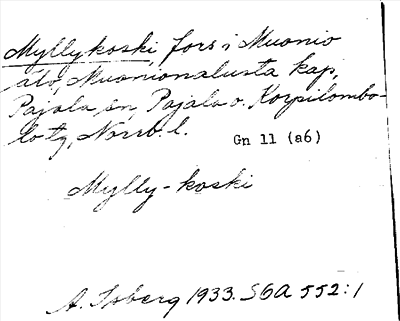 Myllykoski, fors i Muonio
älv, Muonionalusta kap,
Pajala sn, Pajala o. Korpilombo-
lo tg, Norrb. l.
Gn 11 (a6)
Mylly-koski
A. Isberg 1933. SGA 552:1